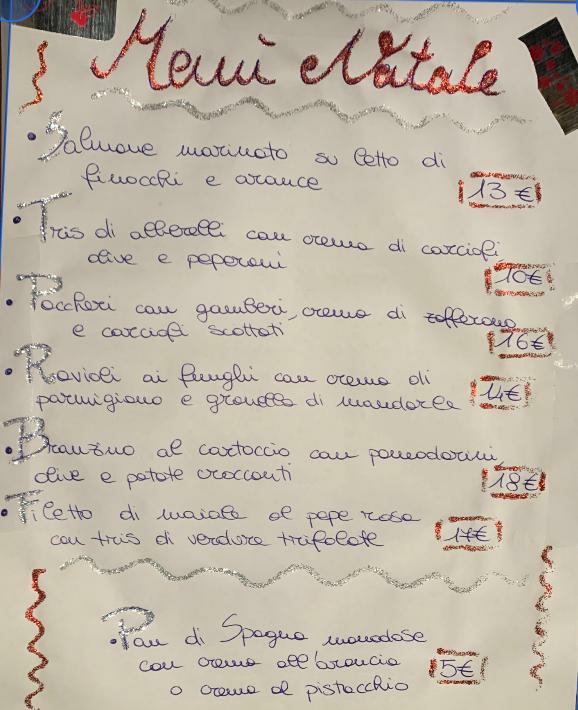 Menù Natale
• Salmone marinato su letto di
finocchi e arance
13 €
• Tris di alberelli con crema di carciofi
olive e peperoni
10€
• Paccheri con gamberi, crema di zafferano
e carciofi scottati
16€
• Ravioli ai funghi con crema di
parmigiano e granella di mandorle
14€
• Branzino al cartoccio con pomodorini
olive e patate croccanti
18€
• Filetto di maiale al pepe rosa
con tris di verdure trifolate
17€
• Pan di Spagna monodose
con crema all'arancia
5€
o crema al pistacchio